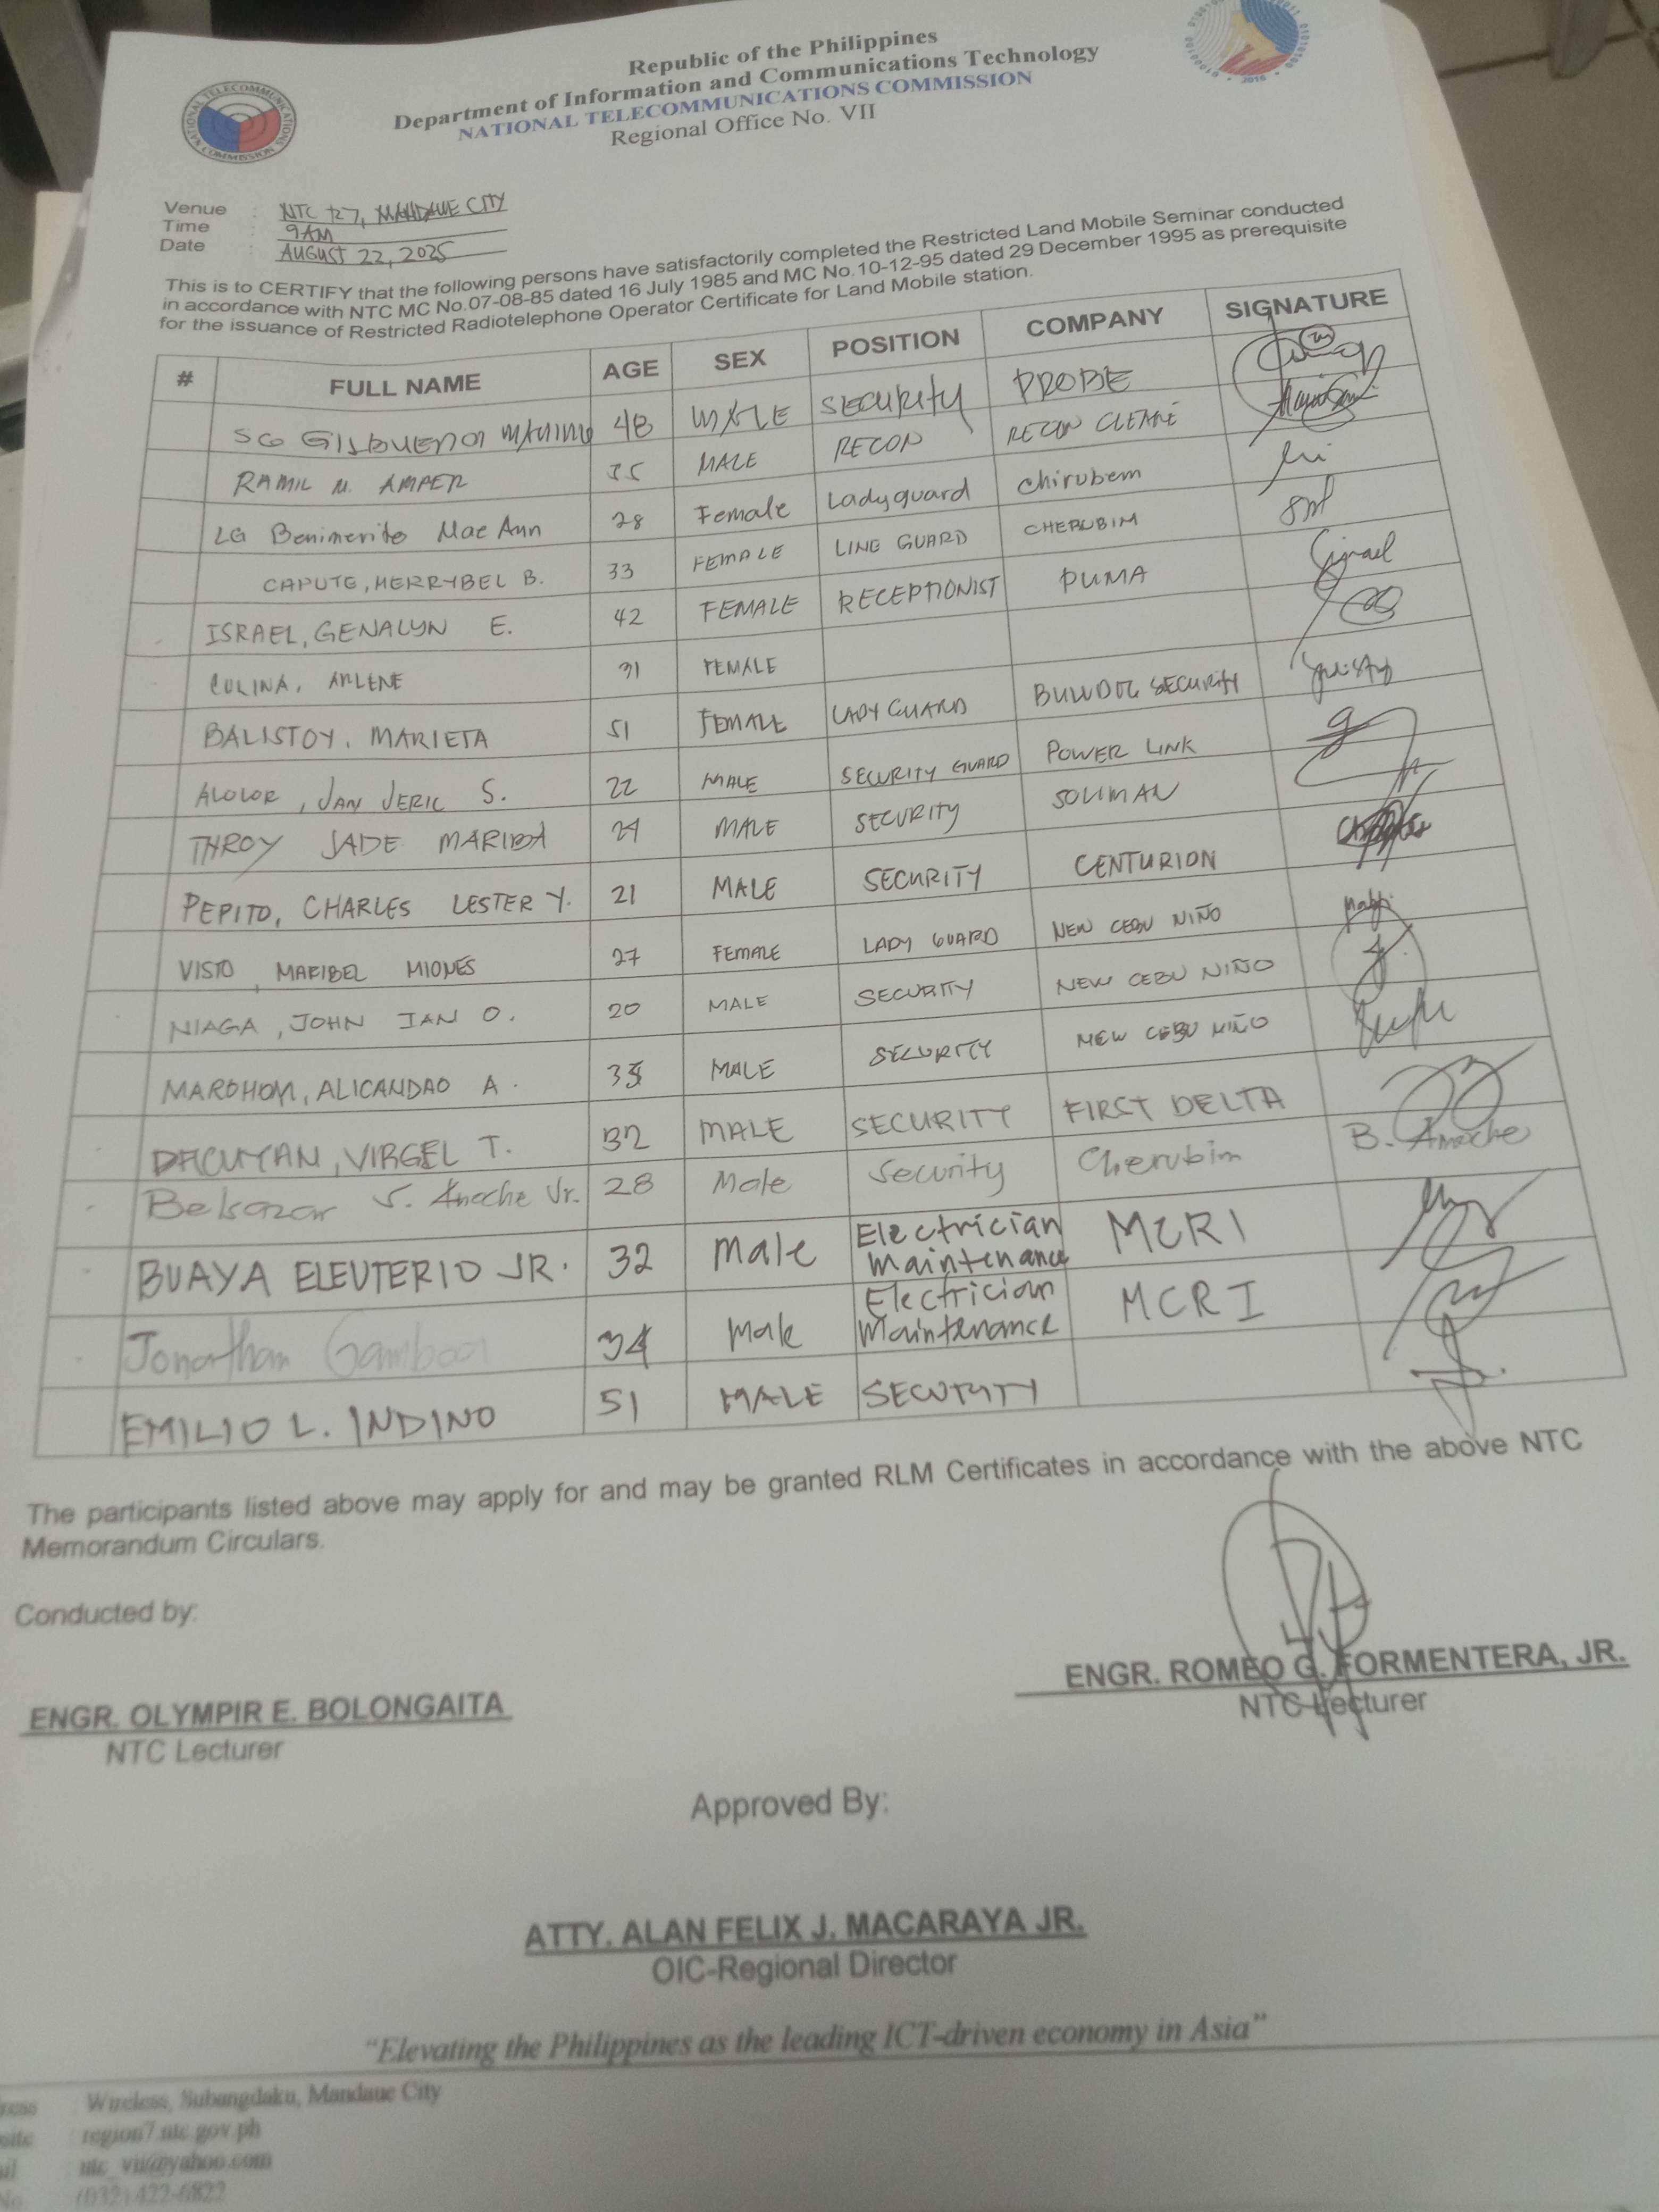 Republic of the Philippines
Department of Information and Communications Technology
NATIONAL TELECOMMUNICATIONS COMMISSION
Regional Office No. VII
NATIONAL TELECOMMUNICATIONS COMMISSION
2016
Venue : NTC R7, MANDAUE CITY
Time : 9AM
Date : AUGUST 22, 2025
This is to CERTIFY that the following persons have satisfactorily completed the Restricted Land Mobile Seminar conducted
in accordance with NTC MC No.07-08-85 dated 16 July 1985 and MC No.10-12-95 dated 29 December 1995 as prerequisite
for the issuance of Restricted Radiotelephone Operator Certificate for Land Mobile station.
# FULL NAME AGE SEX POSITION COMPANY SIGNATURE
SG 48 MALE SECURITY PROBE
RAMIL M. AMPER 35 MALE RECON RECON
LG Benimerito Mae Ann 28 Female Ladyguard Chirubem
CAPUTE, MERRYBEL B. 33 FEMALE LINE GUARD CHERUBIM
ISRAEL, GENALYN E. 42 FEMALE RECEPTIONIST PUMA
COLINA, ARLENE 31 FEMALE
BALISTOY, MARIETA 51 FEMALE LADY GUARD SECURITY
ALOLOR, JAN JERIC S. 22 MALE SECURITY GUARD POWER LINK
THROY JADE MALE SECURITY SOLIMAN
PEPITO, CHARLES LESTER Y. 21 MALE SECURITY CENTURION
VISTO, MARIBEL MIONES 27 FEMALE LADY GUARD NEW CEBU NIÑO
NIAGA, JOHN IAN O. 20 MALE SECURITY NEW CEBU NIÑO
MAROHOM, ALICANDAO A. MALE SECURITY NEW CEBU NIÑO
DACUYAN, VIRGEL T. 32 MALE SECURITY FIRST DELTA
Belsazar S. Anoche Jr. 28 Male Security Cherubim B. Anoche
BUAYA ELEUTERIO JR. 32 Male Electrician Maintenance MCRI
Jonatham Gamboa 34 Male Electrician Maintenance MCRI
EMILIO L. INDINO 51 MALE SECURITY
The participants listed above may apply for and may be granted RLM Certificates in accordance with the above NTC
Memorandum Circulars.
Conducted by:
ENGR. OLYMPIR E. BOLONGAITA
NTC Lecturer
ENGR. ROMEO G. FORMENTERA, JR.
NTC Lecturer
Approved By:
ATTY. ALAN FELIX J. MACARAYA JR.
OIC-Regional Director
“Elevating the Philippines as the leading ICT-driven economy in Asia”
Wireless, Subangdaku, Mandaue City
region7.ntc.gov.ph
ntc_vii@yahoo.com
(032) 422-6822